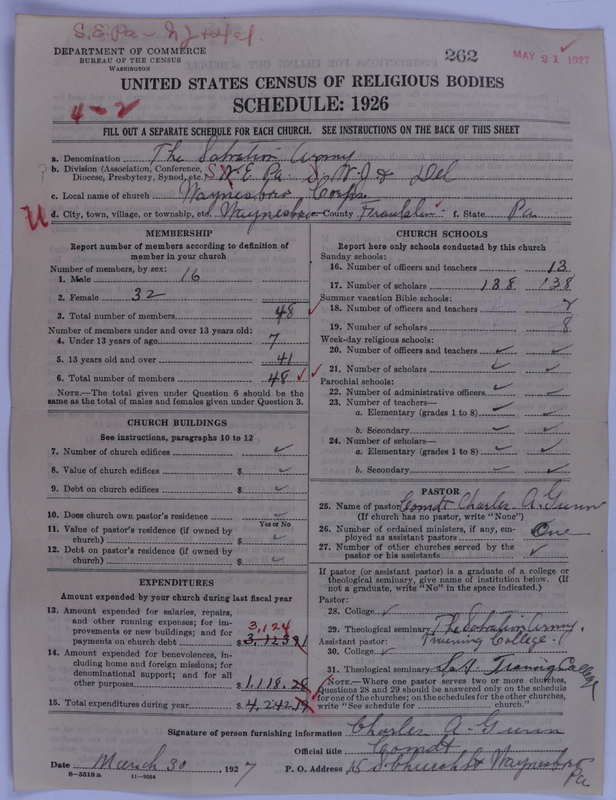 S.E. Pa - N J + del.
262
MAY 21 1927
DEPARTMENT OF COMMERCE
BUREAU OF THE CENSUS
WASHINGTON
UNITED STATES CENSUS OF RELIGIOUS BODIES
4-2
SCHEDULE: 1926
FILL OUT A SEPARATE SCHEDULE FOR EACH CHURCH. SEE INSTRUCTIONS ON THE BACK OF THIS SHEET
a. Denomination The Salvation Army
b. Division (Association, Conference, Diocese, Presbytery, Synod, etc.) E. Pa. & Del
c. Local name of church Waynesboro Corps
d. City, town, village, or township, etc. Waynesboro County Franklin f. State Pa
MEMBERSHIP
Report number of members according to definition of
member in your church
Number of members, by sex:
1. Male 16
2. Female 32
3. Total number of members 48
Number of members under and over 13 years old:
4. Under 13 years of age 7
5. 13 years old and over 41
6. Total number of members 48 ✓
NOTE.—The total given under Question 6 should be
same as the total of males and females given under Question 3.
CHURCH BUILDINGS
See instructions, paragraphs 10 to 12
7. Number of church edifices ✓
8. Value of church edifices $ ✓
9. Debt on church edifices $ ✓
10. Does church own pastor's residence
Yes or No
11. Value of pastor's residence (if owned by
church) $ ✓
12. Debt on pastor's residence (if owned by
church) $ ✓
EXPENDITURES
Amount expended by your church during last fiscal year
13. Amount expended for salaries, repairs,
and other running expenses; for im-
provements or new buildings; and for 3,124
payments on church debt $
14. Amount expended for benevolences, in-
cluding home and foreign missions; for
denominational support; and for all
other purposes $ 1,118.28
15. Total expenditures during year $ 4,242
CHURCH SCHOOLS
Report here only schools conducted by this church
Sunday schools:
16. Number of officers and teachers 13
17. Number of scholars 138 138
Summer vacation Bible schools:
18. Number of officers and teachers 2
19. Number of scholars 8
Week-day religious schools:
20. Number of officers and teachers ✓ ✓
21. Number of scholars ✓ ✓
Parochial schools:
22. Number of administrative officers ✓ ✓
23. Number of teachers—
a. Elementary (grades 1 to 8) ✓ ✓
b. Secondary ✓ ✓
24. Number of scholars—
a. Elementary (grades 1 to 8) ✓ ✓
b. Secondary ✓ ✓
PASTOR
25. Name of pastor Comdt Charles A. Gunn
(If church has no pastor, write "None")
26. Number of ordained ministers, if any, em-
ployed as assistant pastors One
27. Number of other churches served by the
pastor or his assistants ✓
If pastor (or assistant pastor) is a graduate of a college or
theological seminary, give name of institution below. (If
not a graduate, write "No" in the space indicated.)
Pastor:
28. College ✓
29. Theological seminary The Salvation Army
Assistant pastor: Training College.
30. College ✓
31. Theological seminary S.A. Training College
NOTE.—Where one pastor serves two or more churches,
Questions 28 and 29 should be answered only on the schedule
for one of the churches; on the schedules for the other churches,
write "See schedule for church."
Signature of person furnishing information Charles A. Gunn
Official title Comdt
Date March 30, 1927 P. O. Address 15 S. Church St Waynesboro
Pa
8—5518 a 11—9064